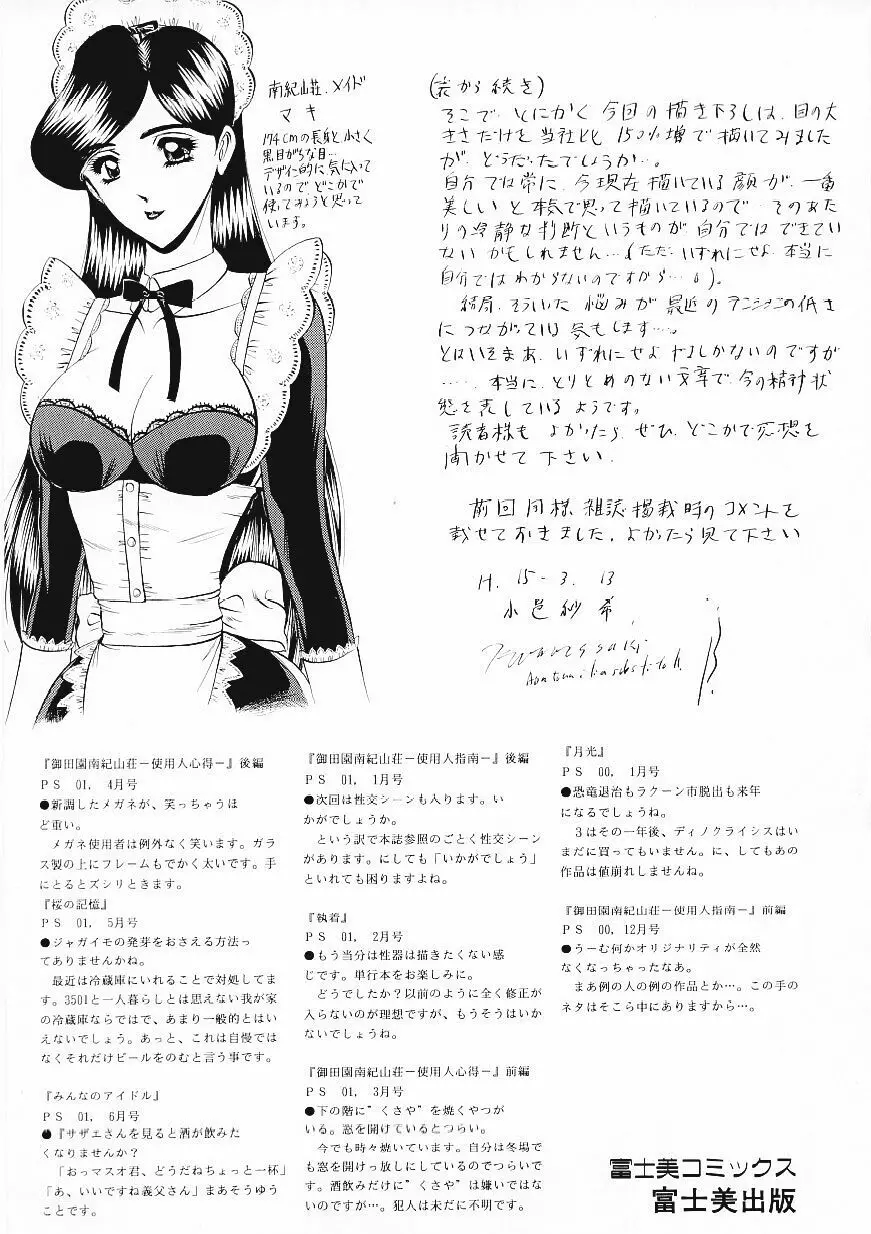 南紀山荘.メイド
マキ
174cmの長身と小さく
黒目がちな目…
デザイン的に気に入って
いるのでどこかで
使ってみようと思って
います。
(表から続き)
そこで、とにかく今回の描き下ろしは、目の大
きさだけを当社比150%増で描いてみました
が、どうだったでしょうか…。
自分では常に、今現在描いている顔が、一番
美しいと本気で思って描いているので…そのあた
りの冷静な判断というものが自分ではできてい
ないかもしれません…(ただ、いずれにせよ本当に
自分ではわからないのですから…。)。
結局、そういった悩みが最近のテンションの低さ
につながっている気もします…。
とはいえまあ、いずれにせよやるしかないのですが
…、本当に、とりとめのない文章で今の精神状
態を表しているようです。
読者様もよかったら、ぜひ、どこかで感想を
聞かせて下さい.
前回同様、雑誌掲載時のコメントを
載せておきました,よかったら見て下さい
H. 15-3. 13
小邑紗希
『御田園南紀山荘－使用人心得－』後編
PS 01, 4月号
●新調したメガネが、笑っちゃうほ
ど重い。
メガネ使用者は例外なく笑います。ガラ
ス製の上にフレームもでかく太いです。手
にとるとズシリときます。
『桜の記憶』
PS 01, 5月号
●ジャガイモの発芽をおさえる方法っ
てありませんかね。
最近は冷蔵庫にいれることで対処してま
す。350ℓと一人暮らしとは思えない我が家
の冷蔵庫ならではで、あまり一般的とはい
えないでしょう。あっと、これは自慢では
なくそれだけビールをのむと言う事です。
『みんなのアイドル』
PS 01, 6月号
●『サザエさんを見ると酒が飲みた
くなりませんか?
「おっマスオ君、どうだねちょっと一杯」
「あ、いいですね義父さん」まあそうゆう
ことです。
『御田園南紀山荘－使用人指南－』後編
PS 01, 1月号
●次回は性交シーンも入ります。い
かがでしょうか。
という訳で本誌参照のごとく性交シーン
があります。にしても「いかがでしょう」
といれても困りますよね。
『執着』
PS 01, 2月号
●もう当分は性器は描きたくない感
じです。単行本をお楽しみに。
どうでしたか?以前のように全く修正が
入らないのが理想ですが、もうそうはいか
ないでしょうね。
『御田園南紀山荘－使用人心得－』前編
PS 01, 3月号
●下の階に”くさや”を焼くやつが
いる。窓を開けているとつらい。
今でも時々焼いています。自分は冬場で
も窓を開けっ放しにしているのでつらいで
す。酒飲みだけに”くさや”は嫌いではな
いのですが…。犯人は未だに不明です。
『月光』
PS 00, 1月号
●恐竜退治もラクーン市脱出も来年
になるでしょうね。
3はその一年後、ディノクライシスはい
まだに買ってもいません。に、してもあの
作品は値崩れしませんね。
『御田園南紀山荘－使用人指南－』前編
PS 00, 12月号
●うーむ何かオリジナリティが全然
なくなっちゃったなあ。
まあ例の人の例の作品とか…。この手の
ネタはそこら中にありますから…。
富士美コミックス
富士美出版